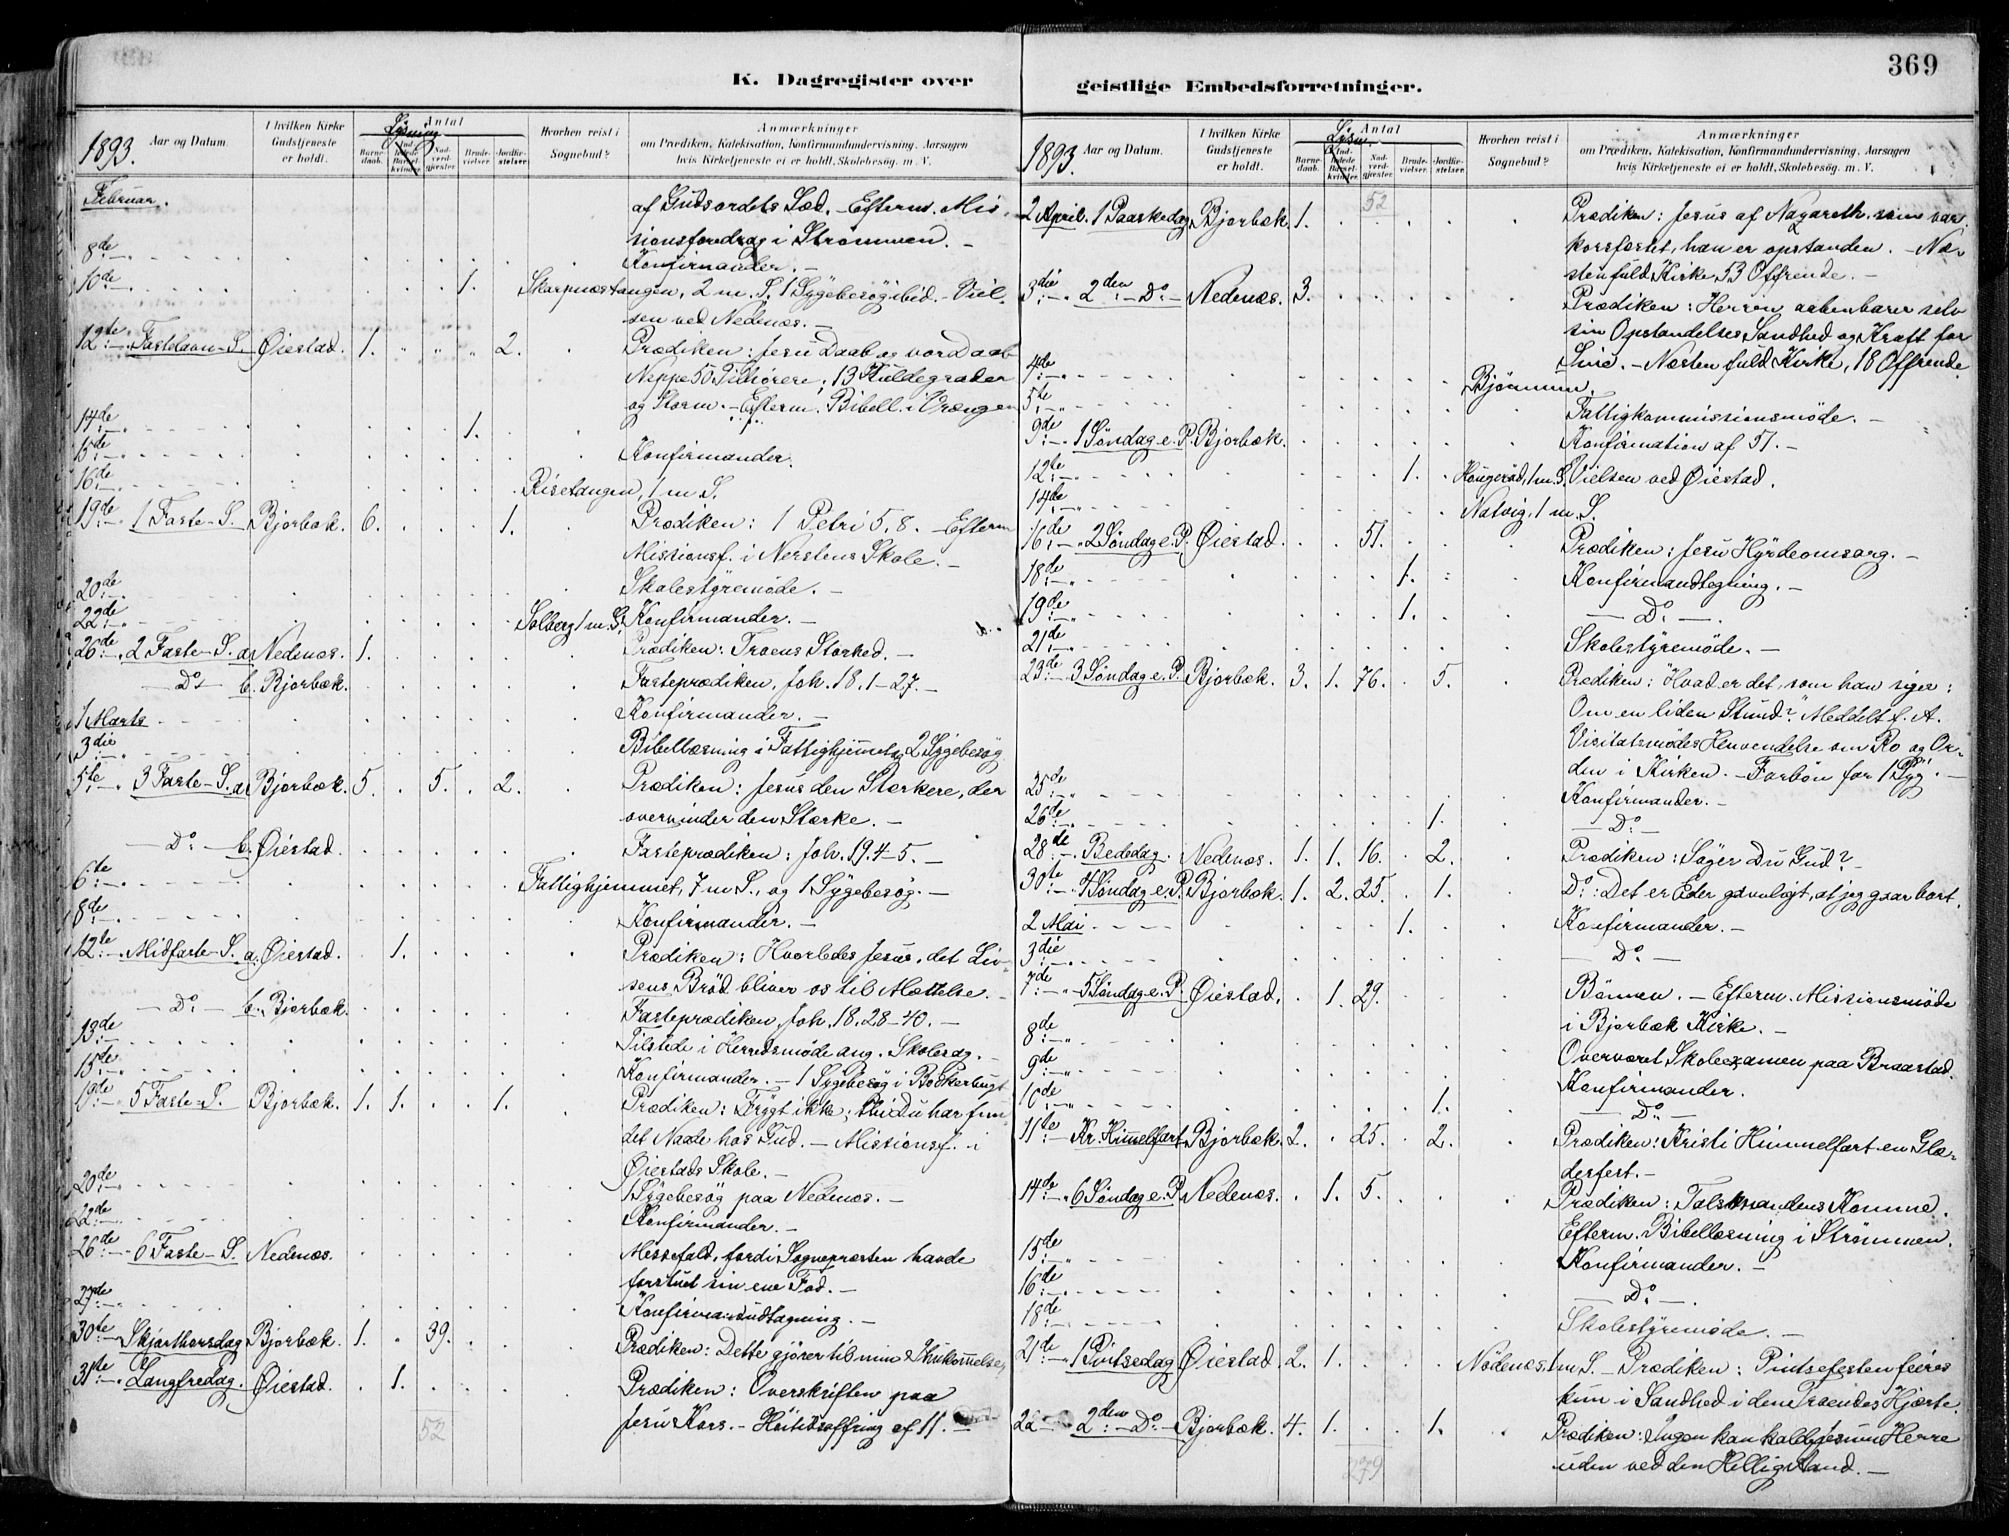 K. Dagregister over
1893. Aar og Datum. I hvilken Kirke Gudstjeneste er holdt. Antal Lysning Barnedaab. Indledede Barselkvinder. Nadverdgjester. Brudevielser. Jordfæstelser. Hvorhen reist i Sognebud? Anmærkninger om Prædiken, Katekisation, Konfirmandundervisning, Aarsagen hvis Kirketjeneste ei er holdt, Skolebesög. m. V.
Februar. af Guds ordets Sæd. Efterm. Mis-
sionsforedrag i Strømmen. –
8de Konfirmander. –
10de 1. Skarpnestangen, 2 m. S. 1 Sygebesøg ibid. – Viel-
sen ved Nedenæs. –
12te Fastelavn-S. Øiestad. 1. 2. Prædiken: Jesu Daab og vor Daab
Neppe 50 Tilhørere; 13 Kuldegrader
og Storm. – Efterm. Bibell. i Vrængen
14de 1.
15de Konfirmander.
16de Risetangen, 1 m S.
19de 1 Faste-S. Bjorbæk. 6. 1. Prædiken: 1 Petri 5. 8. – Efterm
Missionsf. i Nerstens Skole. –
20de Skolestyremøde. –
22de Solberg 1 m. S. Konfirmander. –
26de 2 Faste-S. a. Nedenæs. 1. Prædiken: Troens Storhed. –
Do b. Bjorbæk. Fasteprædiken, Joh. 18. 1–27. –
1 Marts Konfirmander. –
3die Bibellæsning i Fattighjemmet, 2 Sygebesøg
5te 3 Faste-S. a. Bjorbæk. 5. 5. 2. Prædiken: Jesus den Stærkere, der
overvinder den Stærke. –
Do b. Øiestad. Fasteprædiken: Joh. 19. 4–5. –
6te Fattighjemmet, 7 m S., og 1 Sygebesøg. –
8de Konfirmander. –
12te Midfaste-S. a. Øiestad. 1. Prædiken: Hvorledes Jesus, det Liv-
sens Brød bliver os til Mættelse. –
Do b. Bjorbæk. Fasteprædiken, Joh. 18. 28–40. –
13de Tilstede i Herredsmøde ang. Skolesag. –
15de Konfirmander. – 1 Sygebesøg i
19de 5 Faste-S. Bjorbæk. 1. 1. 1. Prædiken: Frygt ikke; thi Du har fun-
det Naade hos Gud. – Missionsf. i
Øiestads Skole. –
20de 1 Sygebesøg paa Nedenæs. –
22de Konfirmander. –
26de 6 Faste-S. Nedenæs. Messefald, fordi Sognepræsten havde
forstuet sin ene Fod. –
27de Konfirmandudtagning. –
30te Skjærthorsdag Bjorbæk. 1. 39. Prædiken: Dette gjører til min Ihukommelse,
31te Langfredag. Øiestad. 1. Prædiken: Overskriften paa
Jesu Kors. – Høitidsoffring af 11. –
52
369
geistlige Embedsforretninger.
1893. Aar og Datum. I hvilken Kirke Gudstjeneste er holdt. Antal Lysn. Barnedaab. Indledede Barselkvinder. Nadverdgjester. Brudevielser. Jordfæstelser. Hvorhen reist i Sognebud? Anmærkninger om Prædiken, Katekisation, Konfirmandundervisning, Aarsagen hvis Kirketjeneste ei er holdt, Skolebesög. m. V.
52
2 April. 1 Paaskedag Bjorbæk. 1. Prædiken: Jesus af Nazareth, som var
korsfæstet, han er opstanden. – Næ-
sten fuld Kirke 53 Offrende. –
3die 2den Do Nedenæs. 3. Prædiken: Herren aabenbarer selv
sin Opstandelses Sandhed og Kraft for
Sine. – Næsten fuld Kirke, 18 Offrende
4de Bjønnum.
5te Fattigkommissionsmøde. –
9de 1 Søndag e. P. Bjorbæk. Konfirmation af 51. –
12te 1. Haugerød, 1 m. S. Vielsen ved Øiestad.
14de Natvig, 1 m. S.
16de 2 Søndag e. P. Øiestad. 51. Prædiken: Jesu Hyrdeomsorg. –
18de 1. Konfirmandtegning. –
19de 1. Do –
21de Skolestyremøde. –
23de 3 Søndag e. P. Bjorbæk. 3. 1. 76. 5. Prædiken: Hvad er det, som han siger:
Om en liden Stund? Meddelt f. A.
Visitatsmødes Henvendelse om Ro og Or-
den i Kirken. – Forbøn for 1 Syg. –
25de Konfirmander. –
26de 1. Do –
28de Bededag. Nedenæs. 1. 1. 16. 2. Prædiken: Søger Du Gud?
30te 4 Søndag e. P. Bjorbæk. 1. 2. 25. 1. Do: Det er Eder gavnligt, at jeg gaar bort.
2 Mai 1. Konfirmander. –
3die Do –
7de 5 Søndag e. P. Øiestad. 1. 29. Bønnen. – Efterm. Missionsmøde
i Bjorbæk Kirke. –
8de Overværet Skoleexamen paa Braastad.
9de Konfirmander.
10de 1. Do –
11te Kr. Himmelfart Bjorbæk. 2. 25. 2. Prædiken: Kristi Himmelfart en Glæ-
desfest. –
14de 6 Søndag e. P. Nedenæs. 1. 5. Prædiken: Talsmandens Komme.
Efterm. Bibellæsning i Strømmen.
15de Konfirmander. –
16de Do –
18de Skolestyremøde. –
21de 1 Pintsedag Øiestad 2. 1. Nedenæs. 1 m. S. – Prædiken: Pintsefesten feires
kun i Sandhed i de Troendes Hjerte.
22 2den Do – Bjorbæk. 4. 1. 1. Prædiken: Ingen kan kalde Jesum Herre
uden ved den Hellig Aand. –
279